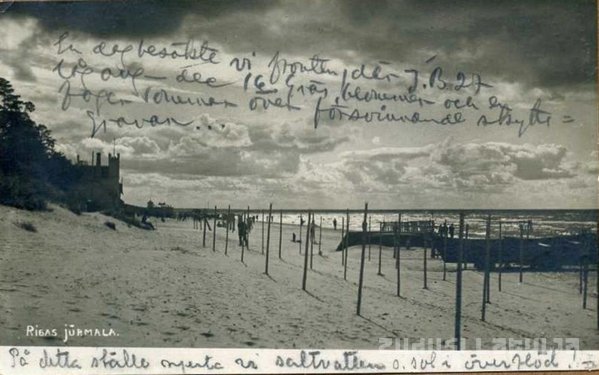 En dag besökte vi fronten, där J.B. 27
tågang den 16. Gräs, blommor och en
fager sommar över försvinnande skytte=
gravar...
RIGAS JŪRMALA.
På detta ställe njuta vi saltvatten o. sol i överflod!